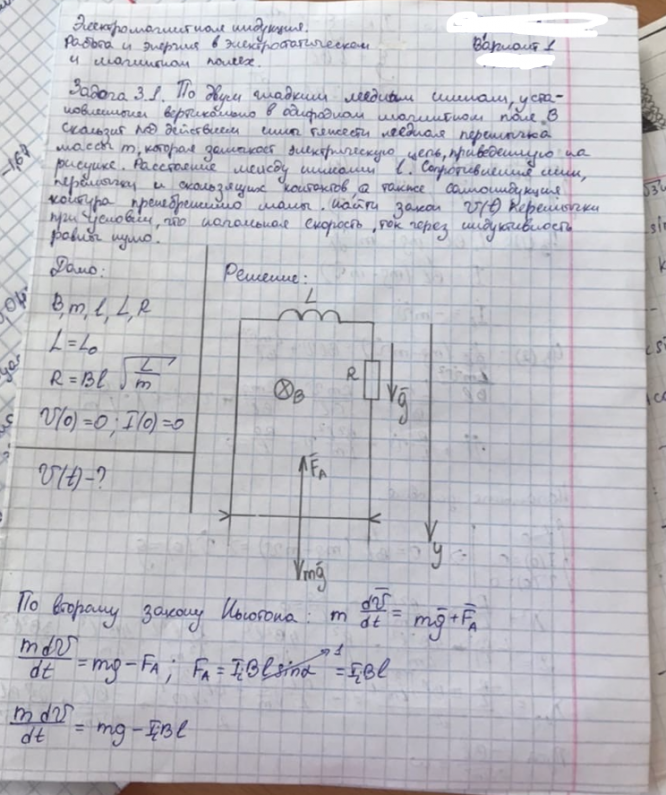 Электромагнитная индукция.
Работа и энергия в электростатическом
и магнитном полях.
Вариант 1
Задача 3.1. По двум гладким медным шинам, уста-
новленным вертикально в однородном магнитном поле B
скользит под действием силы тяжести медная перемычка
массы m, которая замыкает электрическую цепь, приведенную на
рисунке. Расстояние между шинами l. Сопротивление шин,
перемычки и скользящих контактов а также самоиндукция
контура пренебрежимо малы. Найти закон V(t) перемычки
при условии, что начальная скорость, ток через индуктивность
равны нулю.
Дано:
B, m, l, L, R
L = L₀
R = Bl √(L/m)
V(0) = 0; I(0) = 0
V(t) - ?
Решение:
L
R
g̅
⊗B
F̅A
mg̅
y
По второму закону Ньютона: m dV̅/dt = mg̅ + F̅A
mdV/dt = mg - FA; FA = IiBl sinα →1 = IiBl
mdV/dt = mg - IiBl